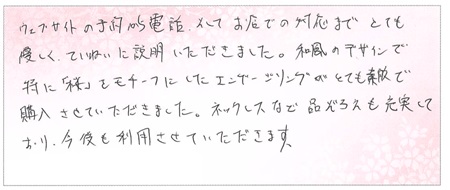 ウェブサイトの予約から電話、そしてお店での対応までとても
優しく、ていねいに説明いただきました。和風のデザインで
特に「桜」をモチーフにしたエンゲージリングがとても素敵で
購入させていただきました。ネックレスなど品ぞろえも充実して
おり、今後も利用させていただきます。